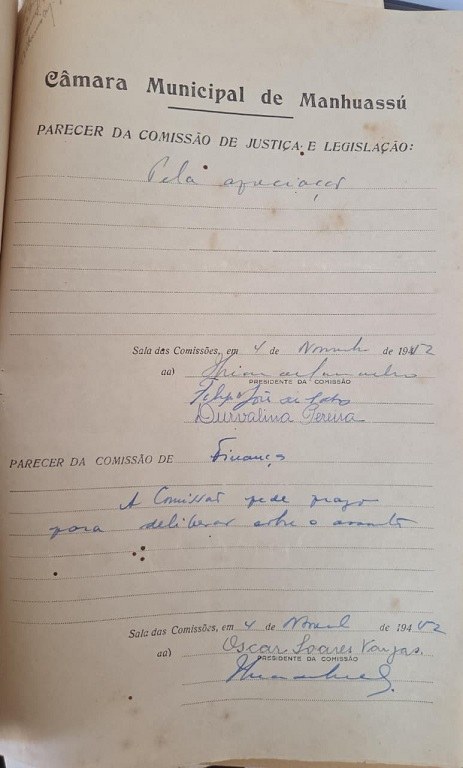 Câmara Municipal de Manhuassú
PARECER DA COMISSÃO DE JUSTIÇA E LEGISLAÇÃO:
Pela apreciação
Sala das Comissões, em 4 de Novembro de 1952
aa)
PRESIDENTE DA COMISSÃO
Felipe José de
Durvalina Pereira
PARECER DA COMISSÃO DE Finanças
A Comissão pede prazo
para deliberar sobre o assunto
Sala das Comissões, em 4 de de 194
aa) Oscar Soares Vargas.
PRESIDENTE DA COMISSÃO